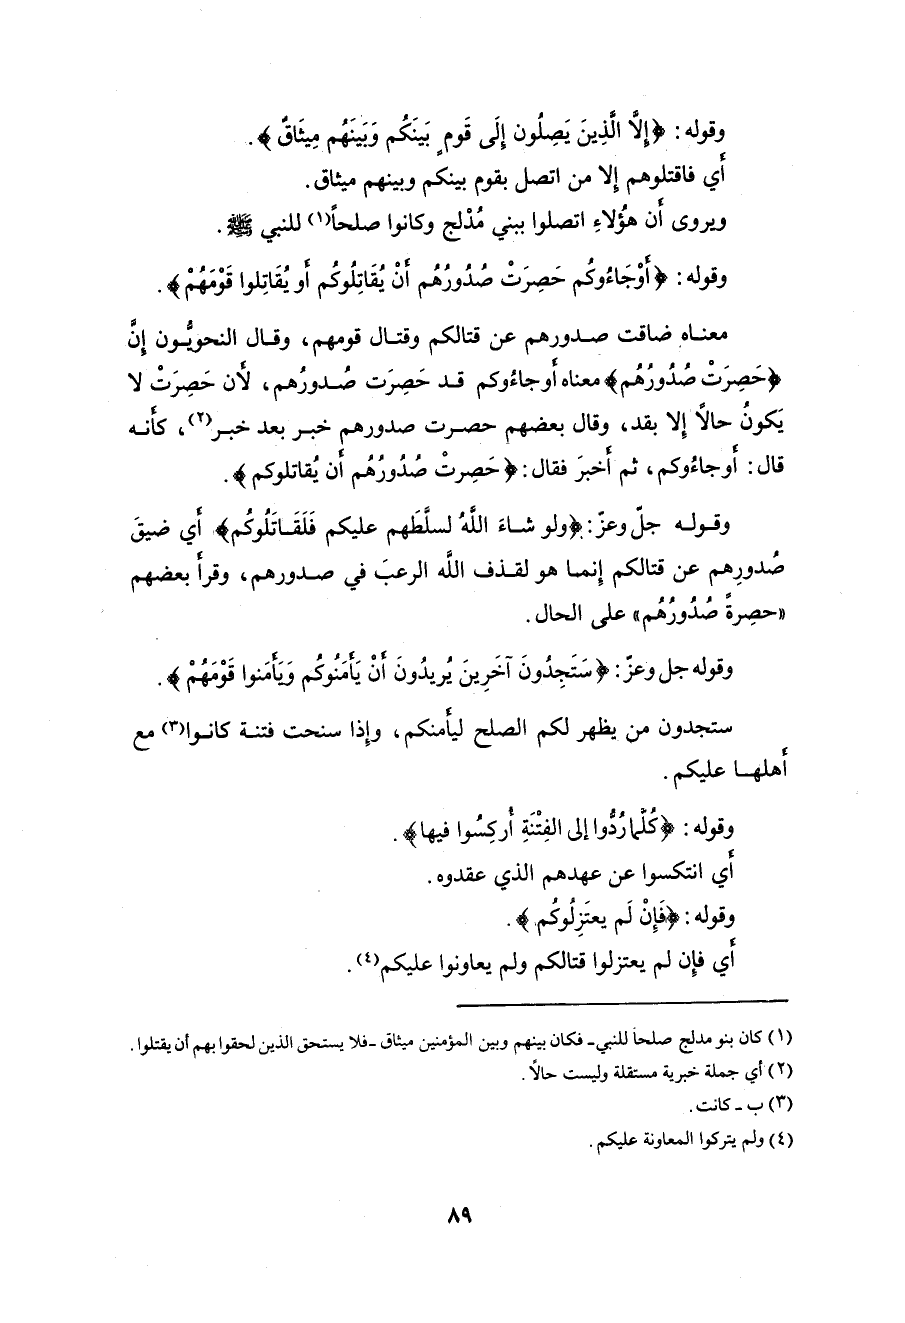 وقوله: ﴿إِلَّا الَّذِينَ يَصِلُون إِلَى قَومٍ بَينَكُم وَبَينَهُم مِيثَاقٌ﴾.
أَي فاقتلوهم إلا من اتصل بقوم بينكم وبينهم ميثاق.
ويروى أَن هؤُلاءِ اتصلوا ببني مُدْلج وكانوا صلحاً(١) للنبي ﷺ.
وقوله: ﴿أَوْجَاءُوكُم حَصِرَتْ صُدُورُهُم أَنْ يُقَاتِلُوكُم أَو يُقَاتِلوا قَوْمَهُمْ﴾.
معنـاه ضاقت صـدورهم عن قتالكم وقتـال قومهم، وقـال النحويُّـون إِنَّ
﴿حَصِرَتْ صُدُورُهُم﴾ معناه أَوجاءُوكم قـد حَصِرَت صُـدورُهم، لأَن حَصِرَتْ لا
يَكونُ حالاً إلا بقد، وقال بعضهم حصـرت صدورهم خبـر بعد خبـر(٢)، كأَنـه
قال: أَوجاءُوكم، ثم أَخبرَ فقال: ﴿حَصِرتْ صُدُورُهُم أَن يُقاتلوكم﴾.
وقـولـه جلّ وعزّ: ﴿ولو شـاءَ اللَّهُ لسلَّطَهم عليكم فَلَقَـاتَلُوكُم﴾ أَي ضيقَ
صُدورِهم عن قتالكم إِنمـا هو لقـذف اللَّه الرعبَ في صـدورهم، وقرأَ بعضهم
«حصِرةً صُدُورُهُم» على الحال.
وقوله جل وعزّ: ﴿سَتَجِدُونَ آخَرِينَ يُرِيدُونَ أَنْ يَأْمَنُوكُم وَيَأْمَنوا قَوْمَهُمْ﴾.
ستجدون من يظهر لكم الصلح ليأَمنكم، وإِذا سنحت فتنـة كانـوا(٣) مع
أَهلهـا عليكم.
وقوله: ﴿كُلَّما رُدُّوا إلى الفِتْنَةِ أُركِسُوا فيها﴾.
أَي انتكسوا عن عهدهم الذي عقدوه.
وقوله: ﴿فَإِنْ لَم يعتَزِلُوكُم﴾.
أَي فإِن لم يعتزلوا قتالكم ولم يعاونوا عليكم(٤).
(١) كان بنو مدلج صلحاً للنبي ـ فكان بينهم وبين المؤمنين ميثاق ـ فلا يستحق الذين لحقوا بهم أن يقتلوا.
(٢) أي جملة خبرية مستقلة وليست حالاً.
(٣) ب ـ كانت.
(٤) ولم يتركوا المعاونة عليكم.
٨٩